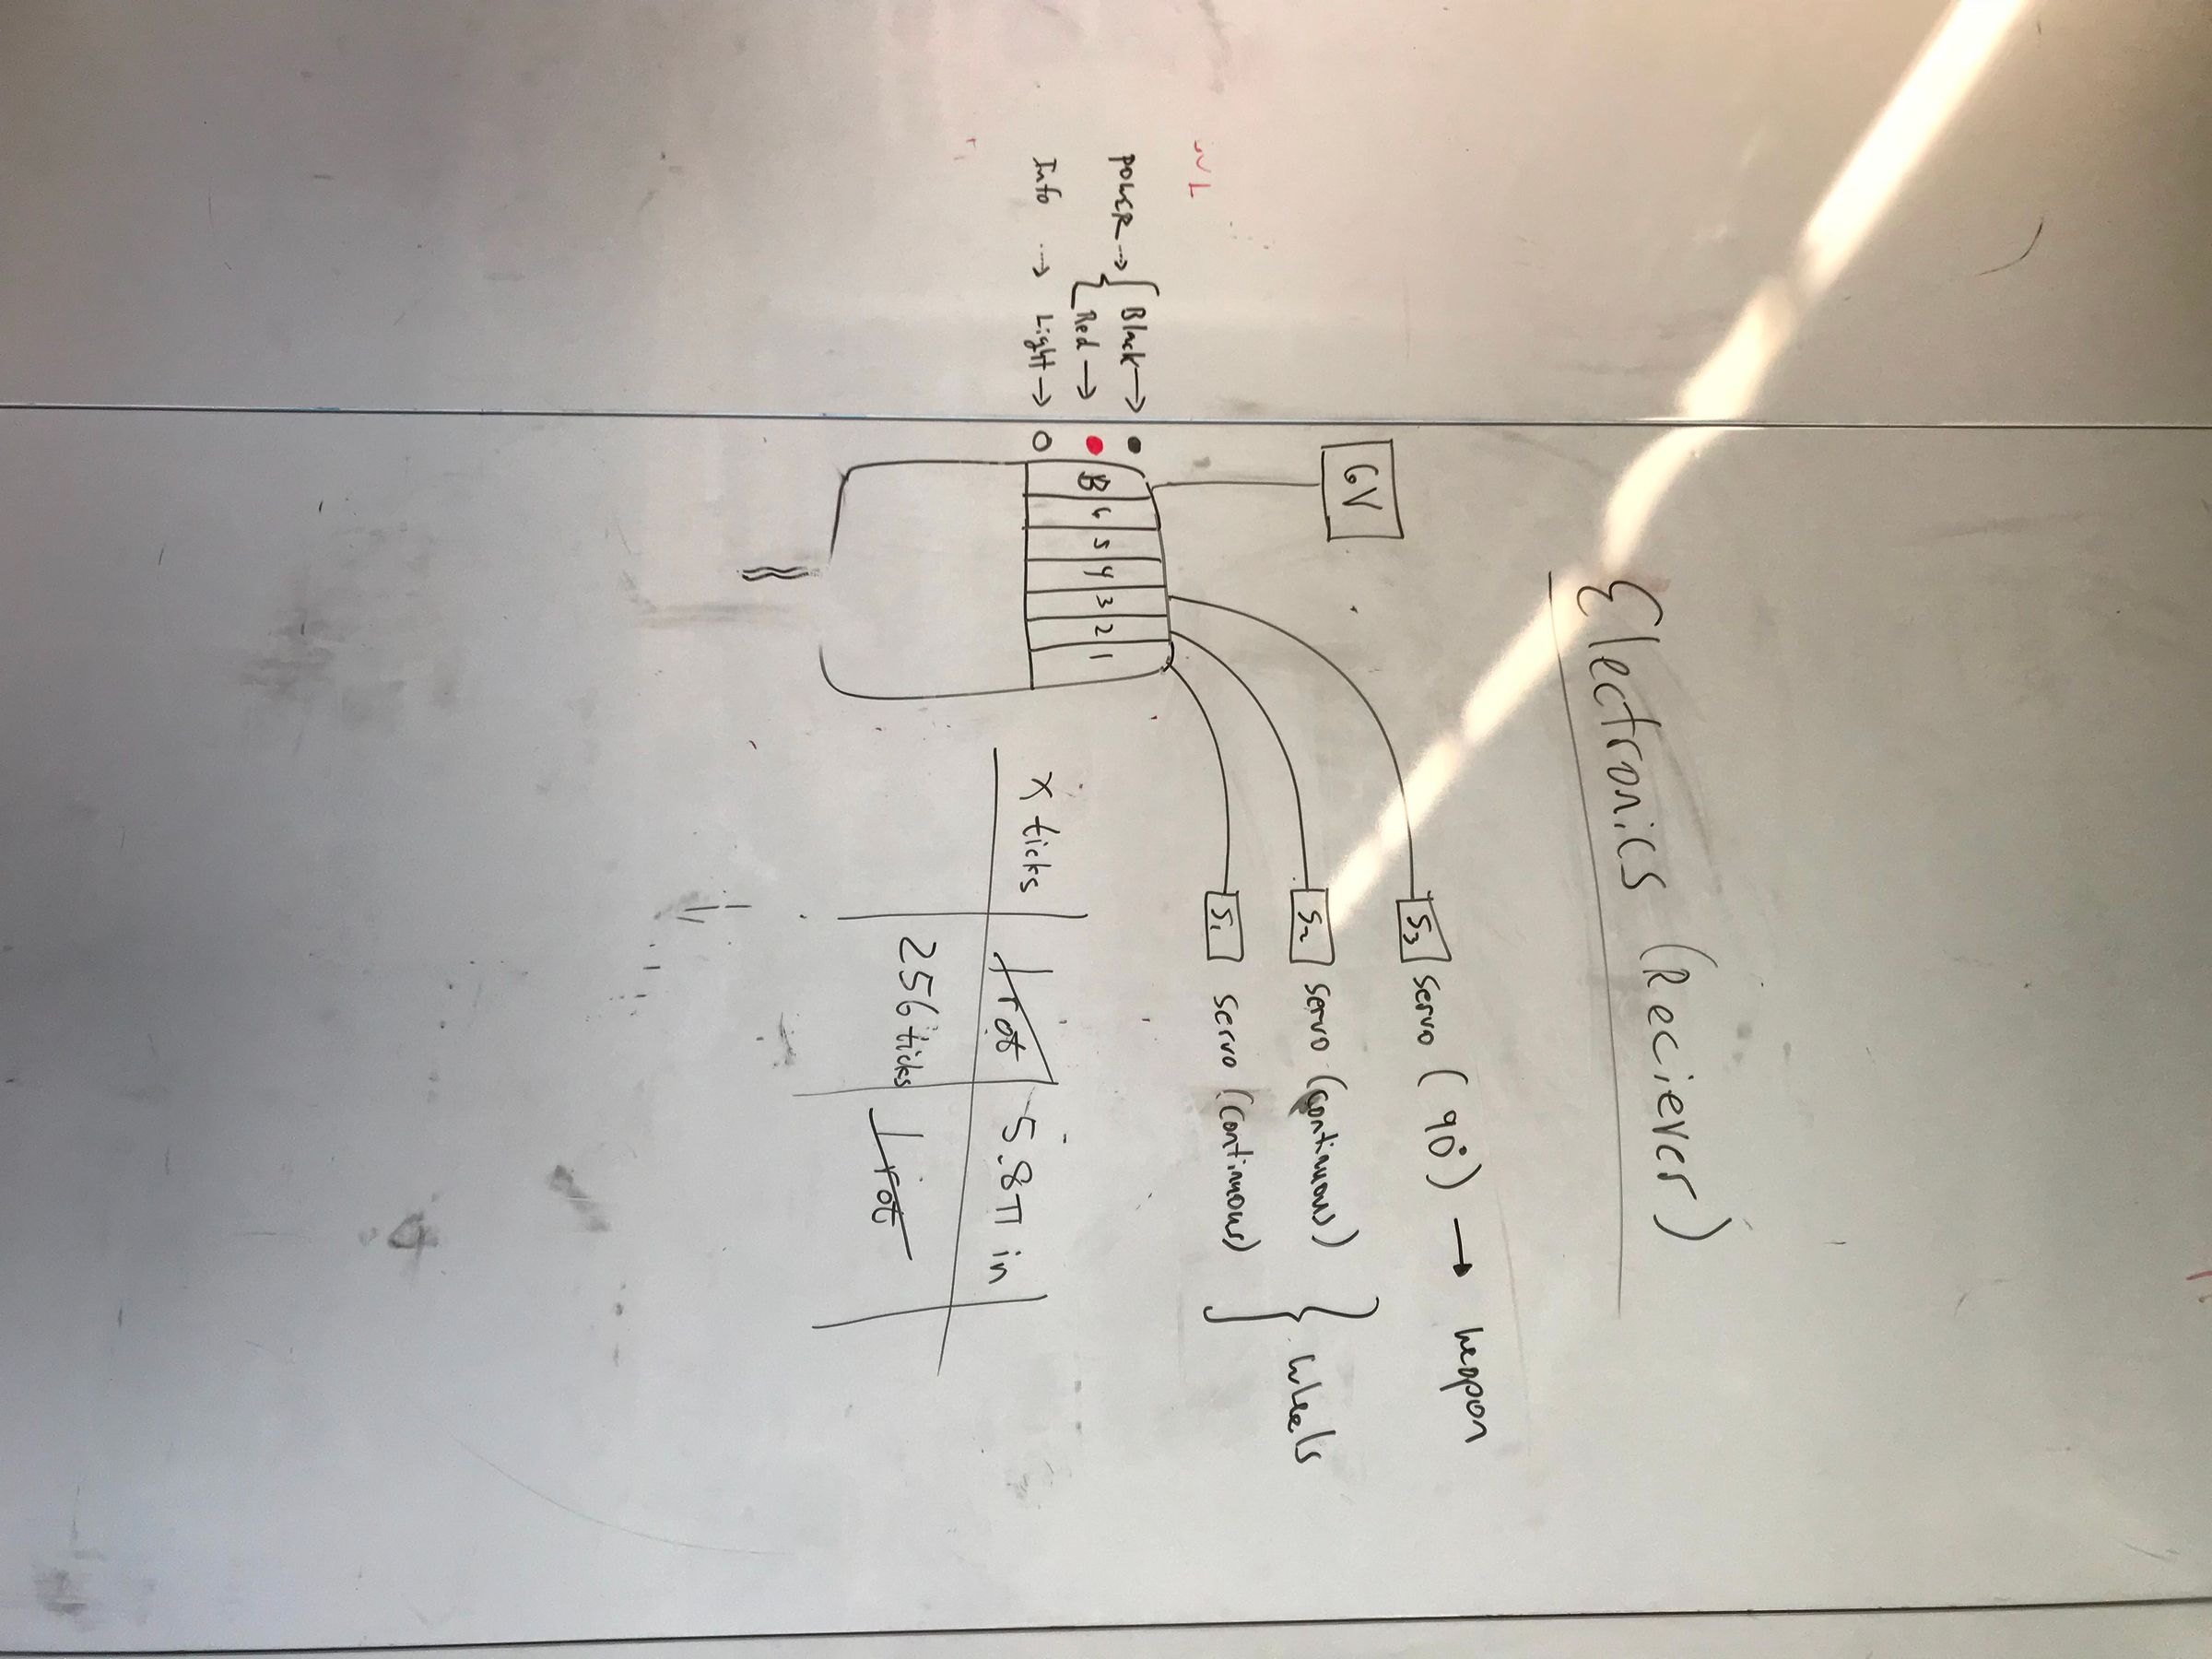 Electronics (Reciever)
6V
S3 servo (90°) → weapon
S2 servo (continuous)
S1 servo (continuous)
} wheels
POWER → { Black →
Red →
Info → Light →
B 6 5 4 3 2 1
x ticks | 1 rot | 5.8π in
256 ticks | 1 rot